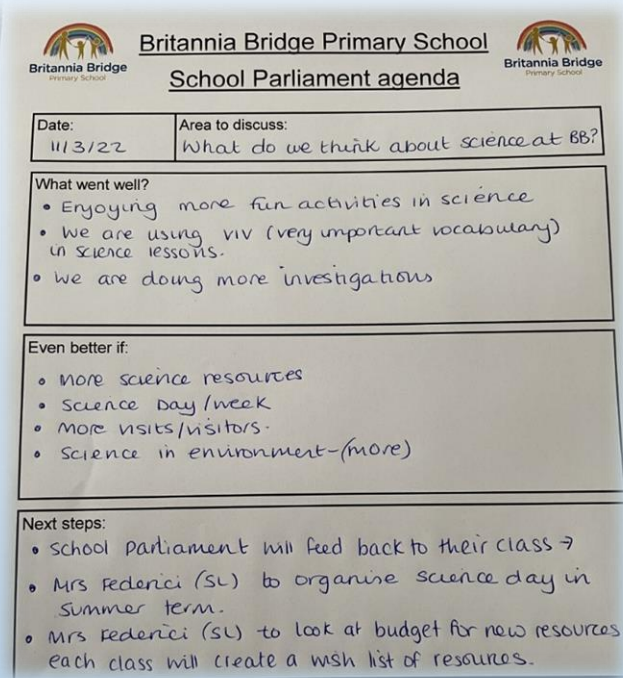 Britannia Bridge Primary School
School Parliament agenda
Britannia Bridge
Primary School
Britannia Bridge
Primary School
Date:
11/3/22
Area to discuss:
What do we think about science at BB?
What went well?
• Enjoying more fun activities in science
• We are using VIV (very important vocabulary)
in science lessons.
• We are doing more investigations
Even better if:
• More science resources
• Science Day/week
• More visits/visitors.
• Science in environment-(more)
Next steps:
• School Parliament will feed back to their class →
• Mrs Federici (SL) to organise science day in
summer term.
• Mrs Federici (SL) to look at budget for new resources
each class will create a wish list of resources.